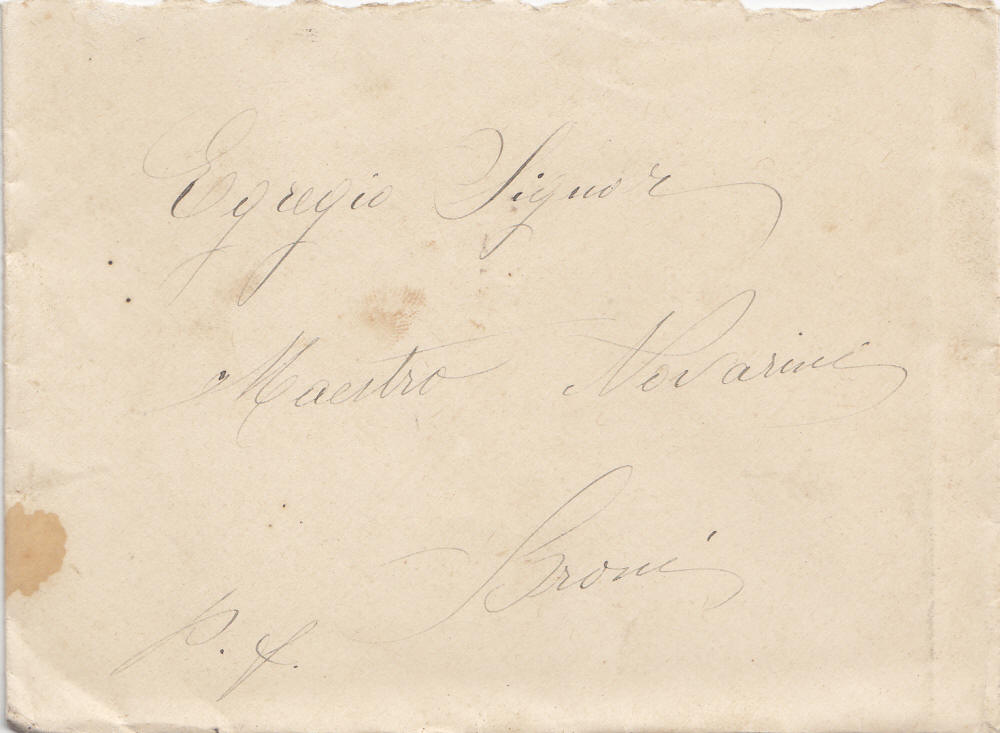 Egregio Signor
Maestro Novarini
Broni
p. f.